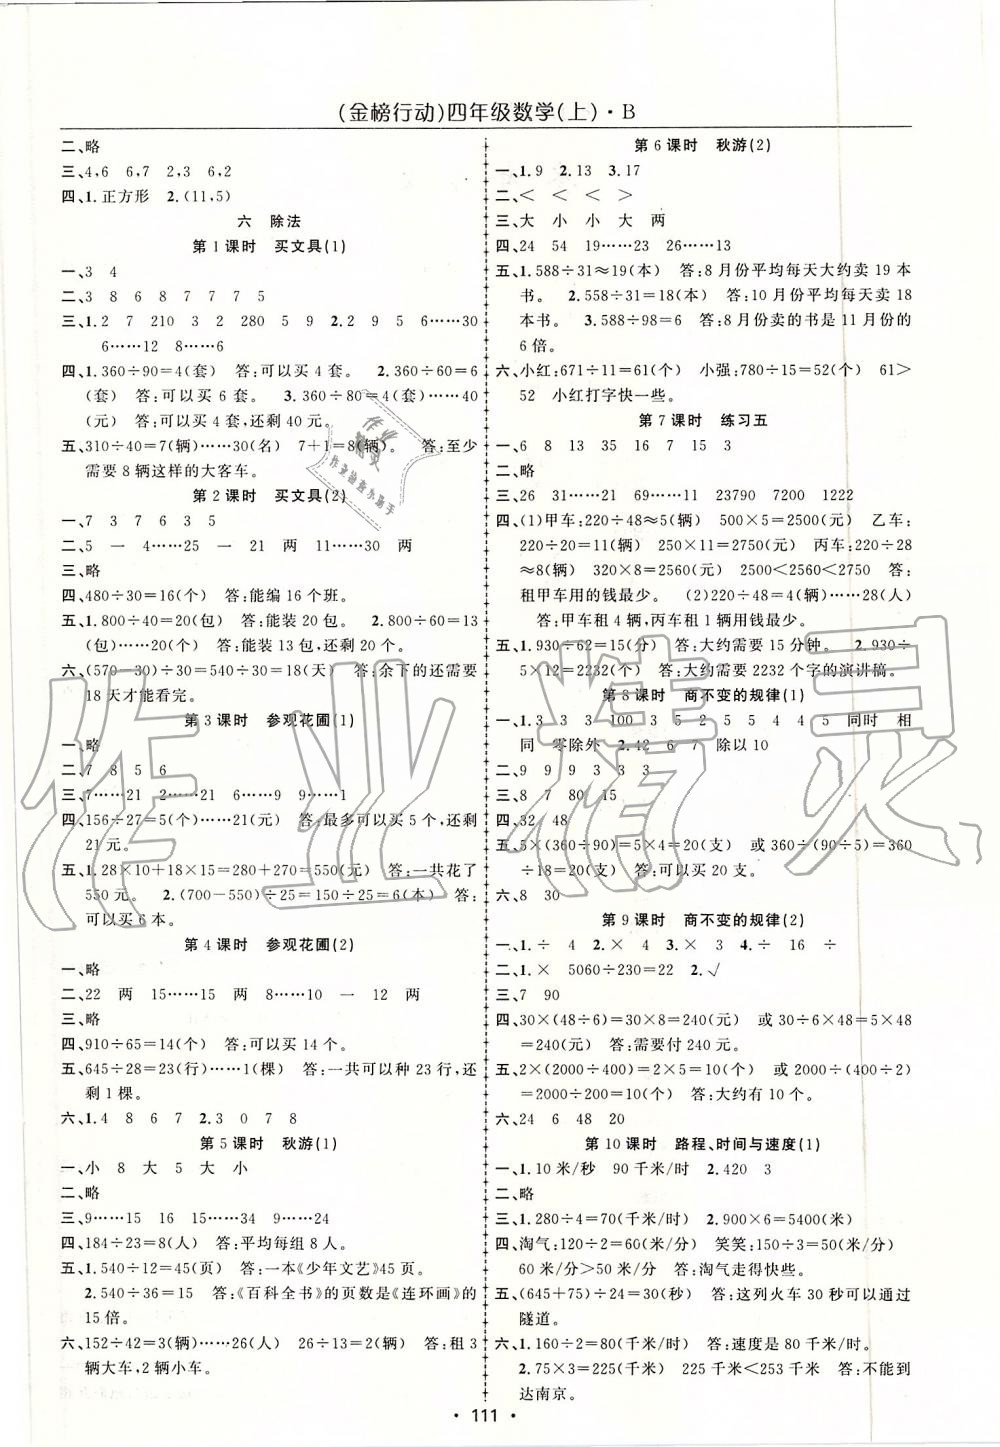 (金榜行动)四年级数学(上)·B
二、略
三、4,6　6,7　2,3　6,2
四、1.正方形　2.(11,5)
六　除法
第1课时　买文具(1)
一、3　4
二、3　8　6　8　7　7　7　5
三、1.2　7　210　3　2　280　5　9　2.2　9　5　6……30
6……12　8……6
四、1.360÷90=4(套)　答:可以买4套。　2.360÷60=6
(套)　答:可以买6套。　3.360÷80=4(套)……40
(元)　答:可以买4套,还剩40元。
五、310÷40=7(辆)……30(名)　7+1=8(辆)　答:至少
需要8辆这样的大客车。
第2课时　买文具(2)
一、7　3　7　6　3　5
二、5　一　4……25　一　21　两　11……30　两
三、略
四、480÷30=16(个)　答:能编16个班。
五、1.800÷40=20(包)　答:能装20包。　2.800÷60=13
(包)……20(个)　答:能装13包,还剩20个。
六、(570-30)÷30=540÷30=18(天)　答:余下的还需要
18天才能看完。
第3课时　参观花圃(1)
一、略
二、7　8　5　6
三、7……21　2……21　6……9　9……1
四、156÷27=5(个)……21(元)　答:最多可以买5个,还剩
21元。
五、1.28×10+18×15=280+270=550(元)　答:一共花了
550元。　2.(700-550)÷25=150÷25=6(本)　答:
可以买6本。
第4课时　参观花圃(2)
一、略
二、22　两　15……15　两　8……10　一　12　两
三、略
四、910÷65=14(个)　答:可以买14个。
五、645÷28=23(行)……1(棵)　答:一共可以种23行,还
剩1棵。
六、1.4　8　6　7　2.3　0　7　8
第5课时　秋游(1)
一、小　8　大　5　大　小
二、略
三、9……15　16　15……24　9……24
四、184÷23=8(人)　答:平均每组8人。
五、1.540÷12=45(页)　答:一本《少年文艺》45页。
2.540÷36=15　答:《百科全书》的页数是《连环画》的
15倍。
六、152÷42=3(辆)……26(人)　26÷13=2(辆)　答:租3
辆大车,2辆小车。
第6课时　秋游(2)
一、1.9　2.13　3.17
二、<　<　<　>
三、大　小　小　大　两
四、24　54　19……23　26……13
五、1.588÷31≈19(本)　答:8月份平均每天大约卖19本
书。　2.558÷31=18(本)　答:10月份平均每天卖18
本书。　3.588÷98=6　答:8月份卖的书是11月份的
6倍。
六、小红:671÷11=61(个)　小强:780÷15=52(个)　61>
52　小红打字快一些。
第7课时　练习五
一、6　8　13　35　16　7　15　3
二、略
三、26　31……21　69……11　23790　7200　1222
四、(1)甲车:220÷48≈5(辆)　500×5=2500(元)　乙车:
220÷20=11(辆)　250×11=2750(元)　丙车:220÷28
≈8(辆)　320×8=2560(元)　2500<2560<2750　答:
租甲车用的钱最少。　(2)220÷48=4(辆)……28(人)
答:甲车租4辆,丙车租1辆用钱最少。
五、1.930÷62=15(分)　答:大约需要15分钟。　2.930÷
5×12=2232(个)　答:大约需要2232个字的演讲稿。
第8课时　商不变的规律(1)
一、1.3　3　3　100　3　5　2　5　5　4　4　5　同时　相
同　零除外　2.42　6　7　除以10
二、9　9　9　3　3　3
三、8　7　80　15
四、32　48
五、5×(360÷90)=5×4=20(支)　或360÷(90÷5)=360
÷18=20(支)　答:可以买20支。
六、8　30
第9课时　商不变的规律(2)
一、1.÷　4　2.×　4　3.×　3　4.÷　16　÷
二、1.×　5060÷230=22　2.√
三、7　90
四、30×(48÷6)=30×8=240(元)　或30÷6×48=5×48
=240(元)　答:需要付240元。
五、2×(2000÷400)=2×5=10(个)　或2000÷(400÷2)
=2000÷200=10(个)　答:大约有10个。
六、24　6　48　20
第10课时　路程、时间与速度(1)
一、1.10米/秒　90千米/时　2.420　3
二、略
三、1.280÷4=70(千米/时)　2.900×6=5400(米)
四、淘气:120÷2=60(米/分)　笑笑:150÷3=50(米/分)
60米/分>50米/分　答:淘气走得快些。
五、(645+75)÷24=30(秒)　答:这列火车30秒可以通过
隧道。
六、1.160÷2=80(千米/时)　答:速度是80千米/时。
2.75×3=225(千米)　225千米<253千米　答:不能到
达南京。
·111·
作业精灵